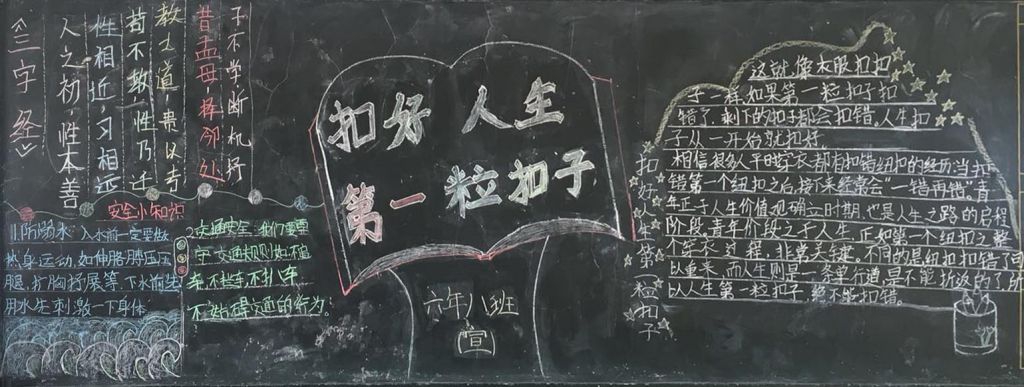 《三字经》
人之初，性本善
性相近，习相远
苟不教，性乃迁
教之道，贵以专
昔孟母，择邻处
子不学，断机杼
安全小知识
1.防溺水：入水前一定要做
热身运动，如伸胳膊压压
腿，扩胸扩展等，下水前先
用水先刺激一下身体
2.交通安全：我们要遵
守交通规则如不骑
车不赶车不扒车
的行为。
扣好人生
第一粒扣子
六年八班
宣
扣好人生第一粒扣子
这就像衣服扣扣
子一样，如果第一粒扣子扣
错了，剩下的扣子都会扣错。人生扣
子从一开始就扣好。
相信很多人平时穿衣都有扣错纽扣的经历，当扣
错第一个纽扣之后，接下来经常会“一错再错”。青
年正于人生价值观确立时期，也是人生之路的启程
阶段，青年阶段之于人生，正如第一个纽扣之整
个穿衣过程，非常关键，不同的是纽扣扣错了可
以重来，而人生则是一条单行道是不能折返的了，所
以人生第一粒扣子，绝不能扣错。